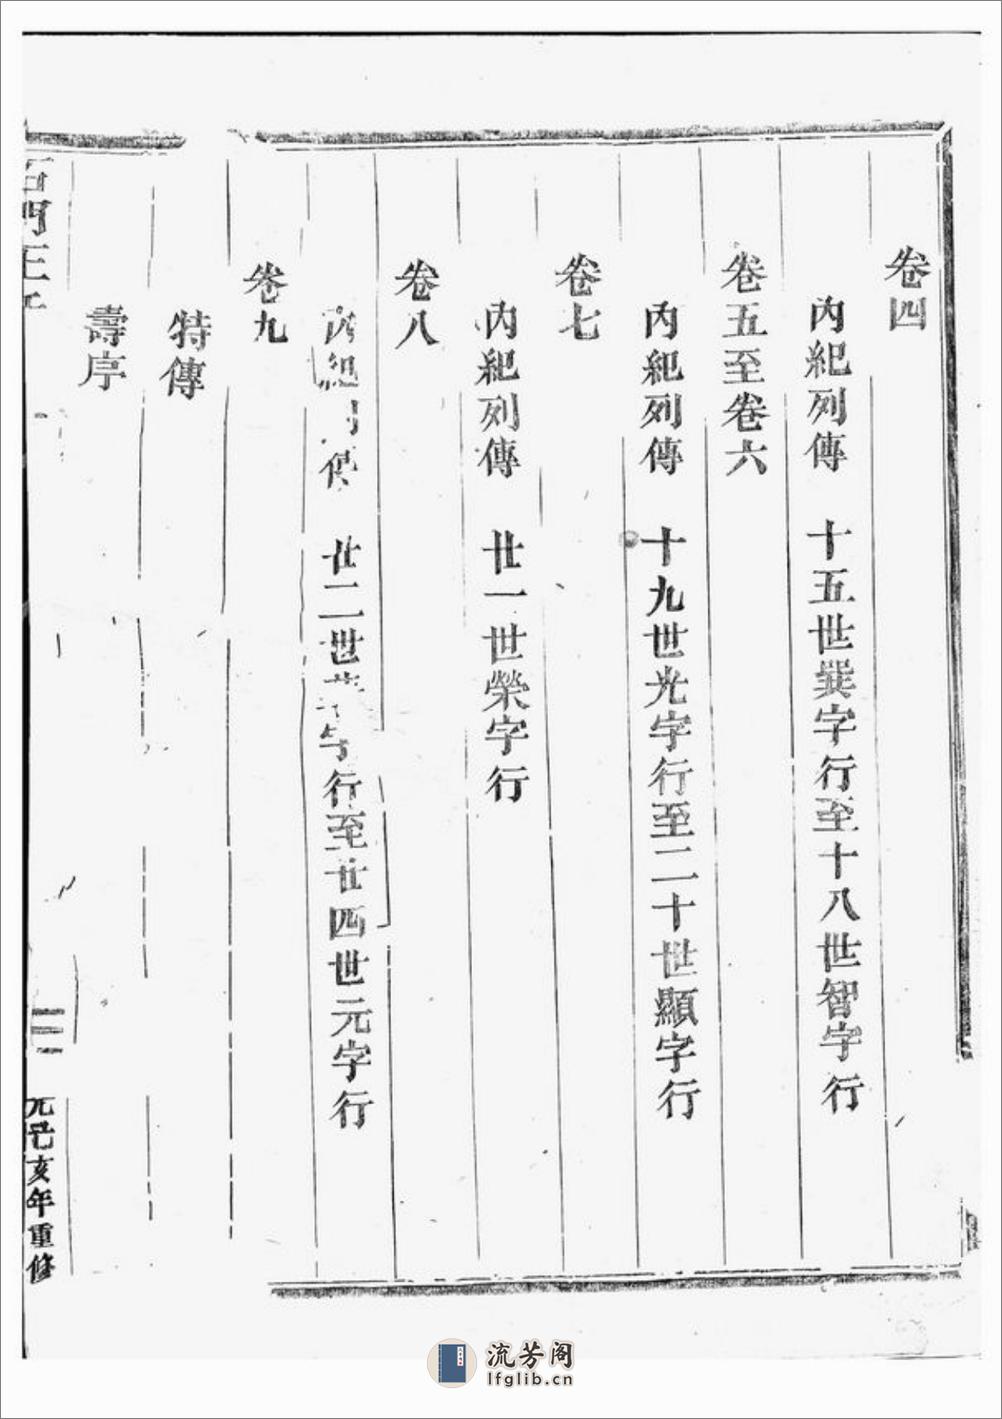 卷四
內紀列傳 十五世巽字行至十八世智字行
卷五至卷六
內紀列傳 十九世光字行至二十世顯字行
卷七
內紀列傳 廿一世榮字行
卷八
內紀列傳 廿二世字行至廿四世元字行
卷九
特傳
壽序
石門王
三
元己亥年重修
流芳阁
lfglib.cn